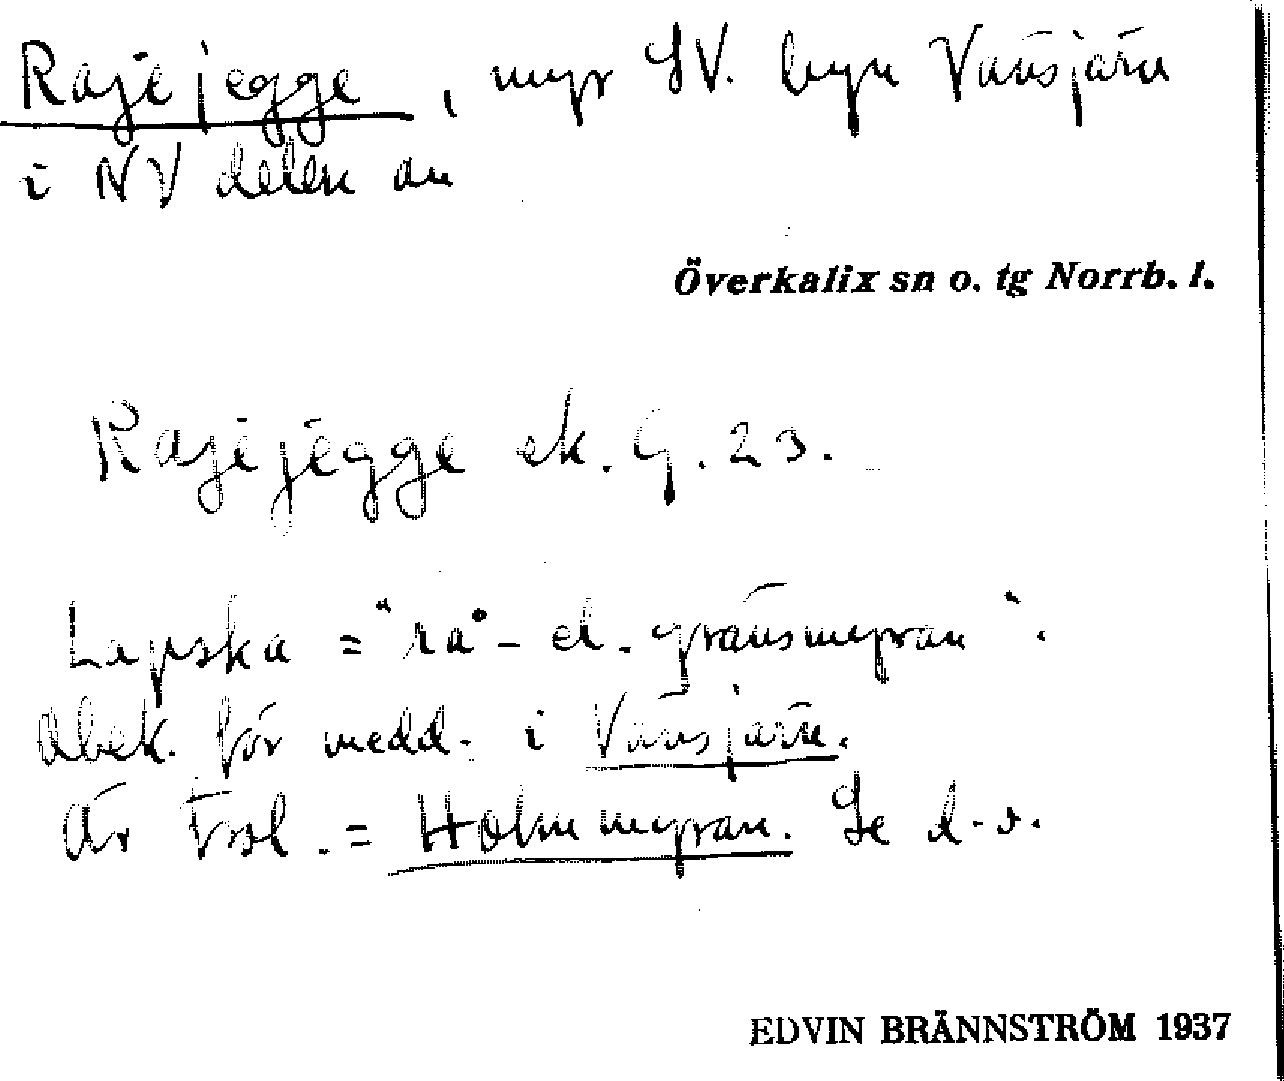 Rajejegge, myr SV. byn Vänsjärv
i NV delen av
Överkalix sn o. tg Norrb. l.
Rajejegge ek. G. 23.
Lapska = "rå- el. gränsmyran".
Obek. för medd. i Vänsjärv.
Är trol. = Holmmyran. Se d.o.
EDVIN BRÄNNSTRÖM 1937